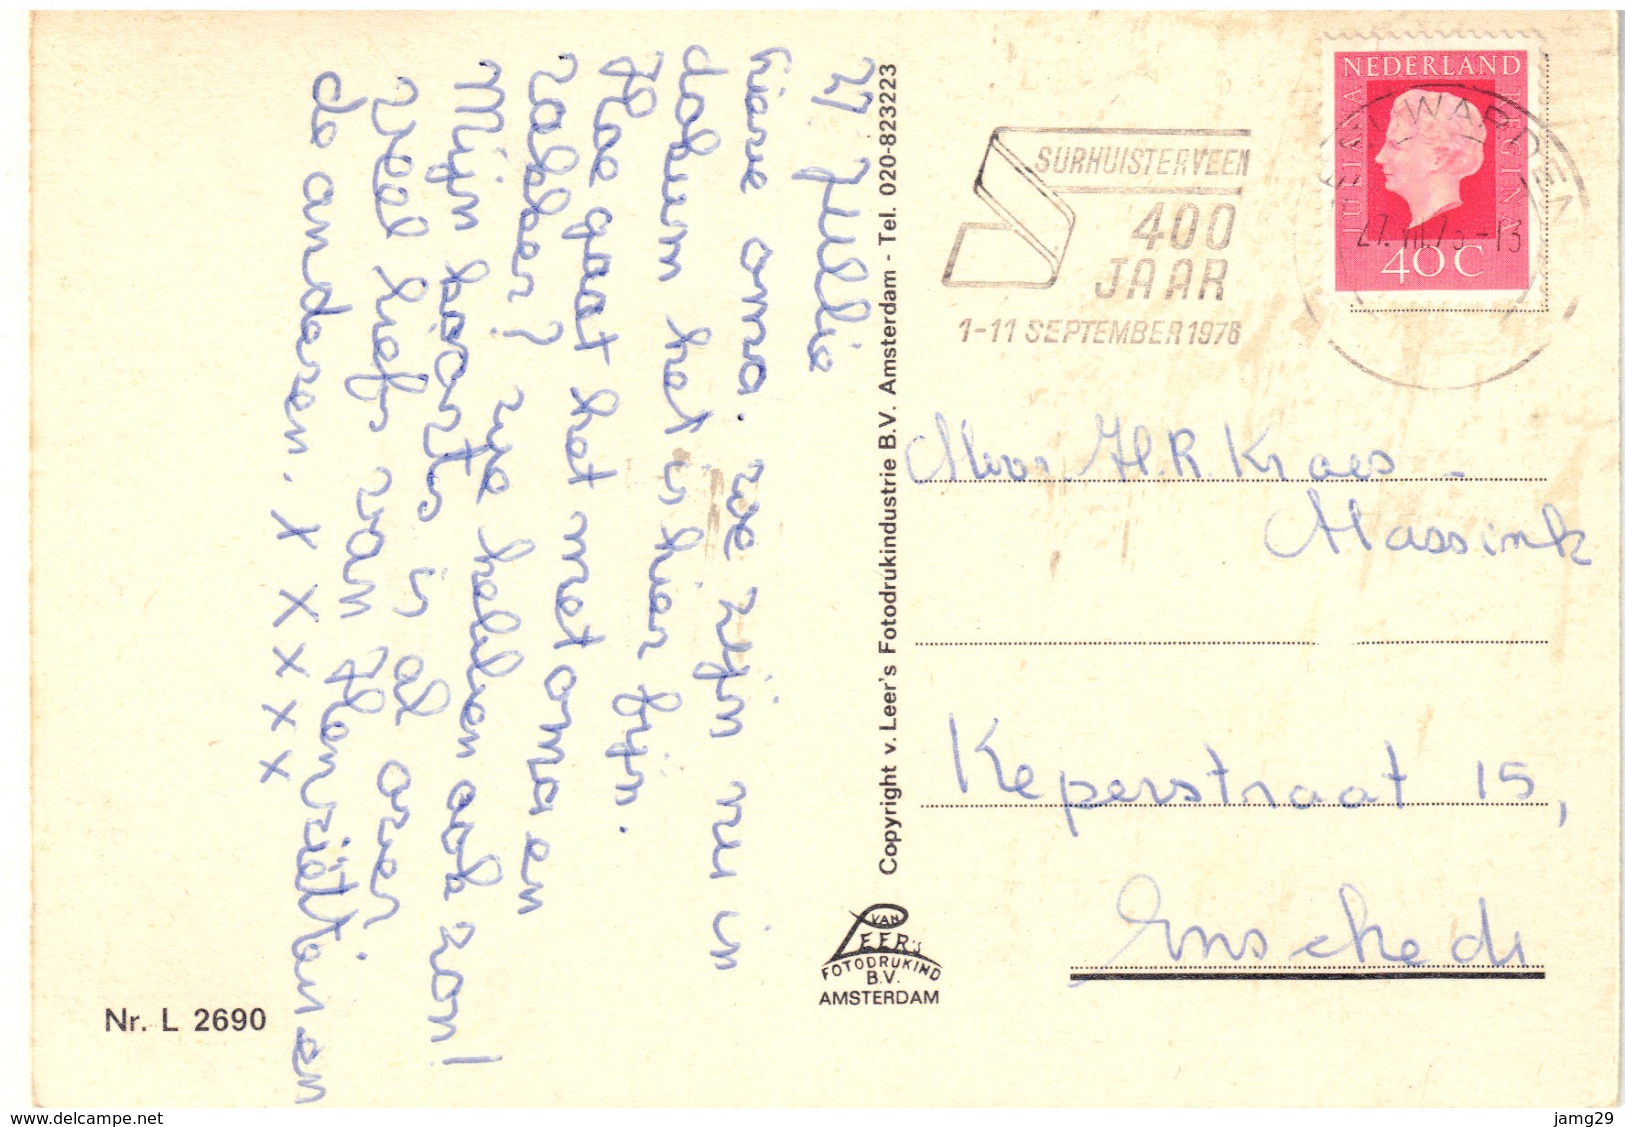 27 Jullie
Lieve oma. we zijn nu in
dokum het is hier fijn.
Hoe gaat het met oma en
rakker? wye hebben ook zon!
Mijn koorts is al over
Veel liefs van Henriëtteu en
de anderen. X X X X X
Nr. L 2690
Copyright v. Leer's Fotodrukindustrie B.V. Amsterdam - Tel. 020-823223
VAN
LEER's
FOTODRUKIND
B.V.
AMSTERDAM
SURHUISTERVEEN
400
JAAR
1-11 SEPTEMBER 1976
NEDERLAND
JULIANA
REGINA
40 C
LEEUWARDEN
Mevr. H.R. Kroes -
Massink
Keperstraat 15,
Enschede
delcampe.net
jamg29